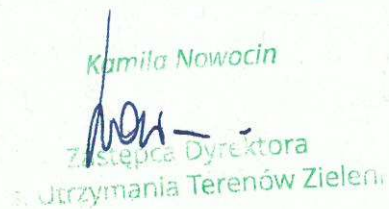 Kamila Nowocin
Zastępca Dyrektora
s. Utrzymania Terenów Zieleni